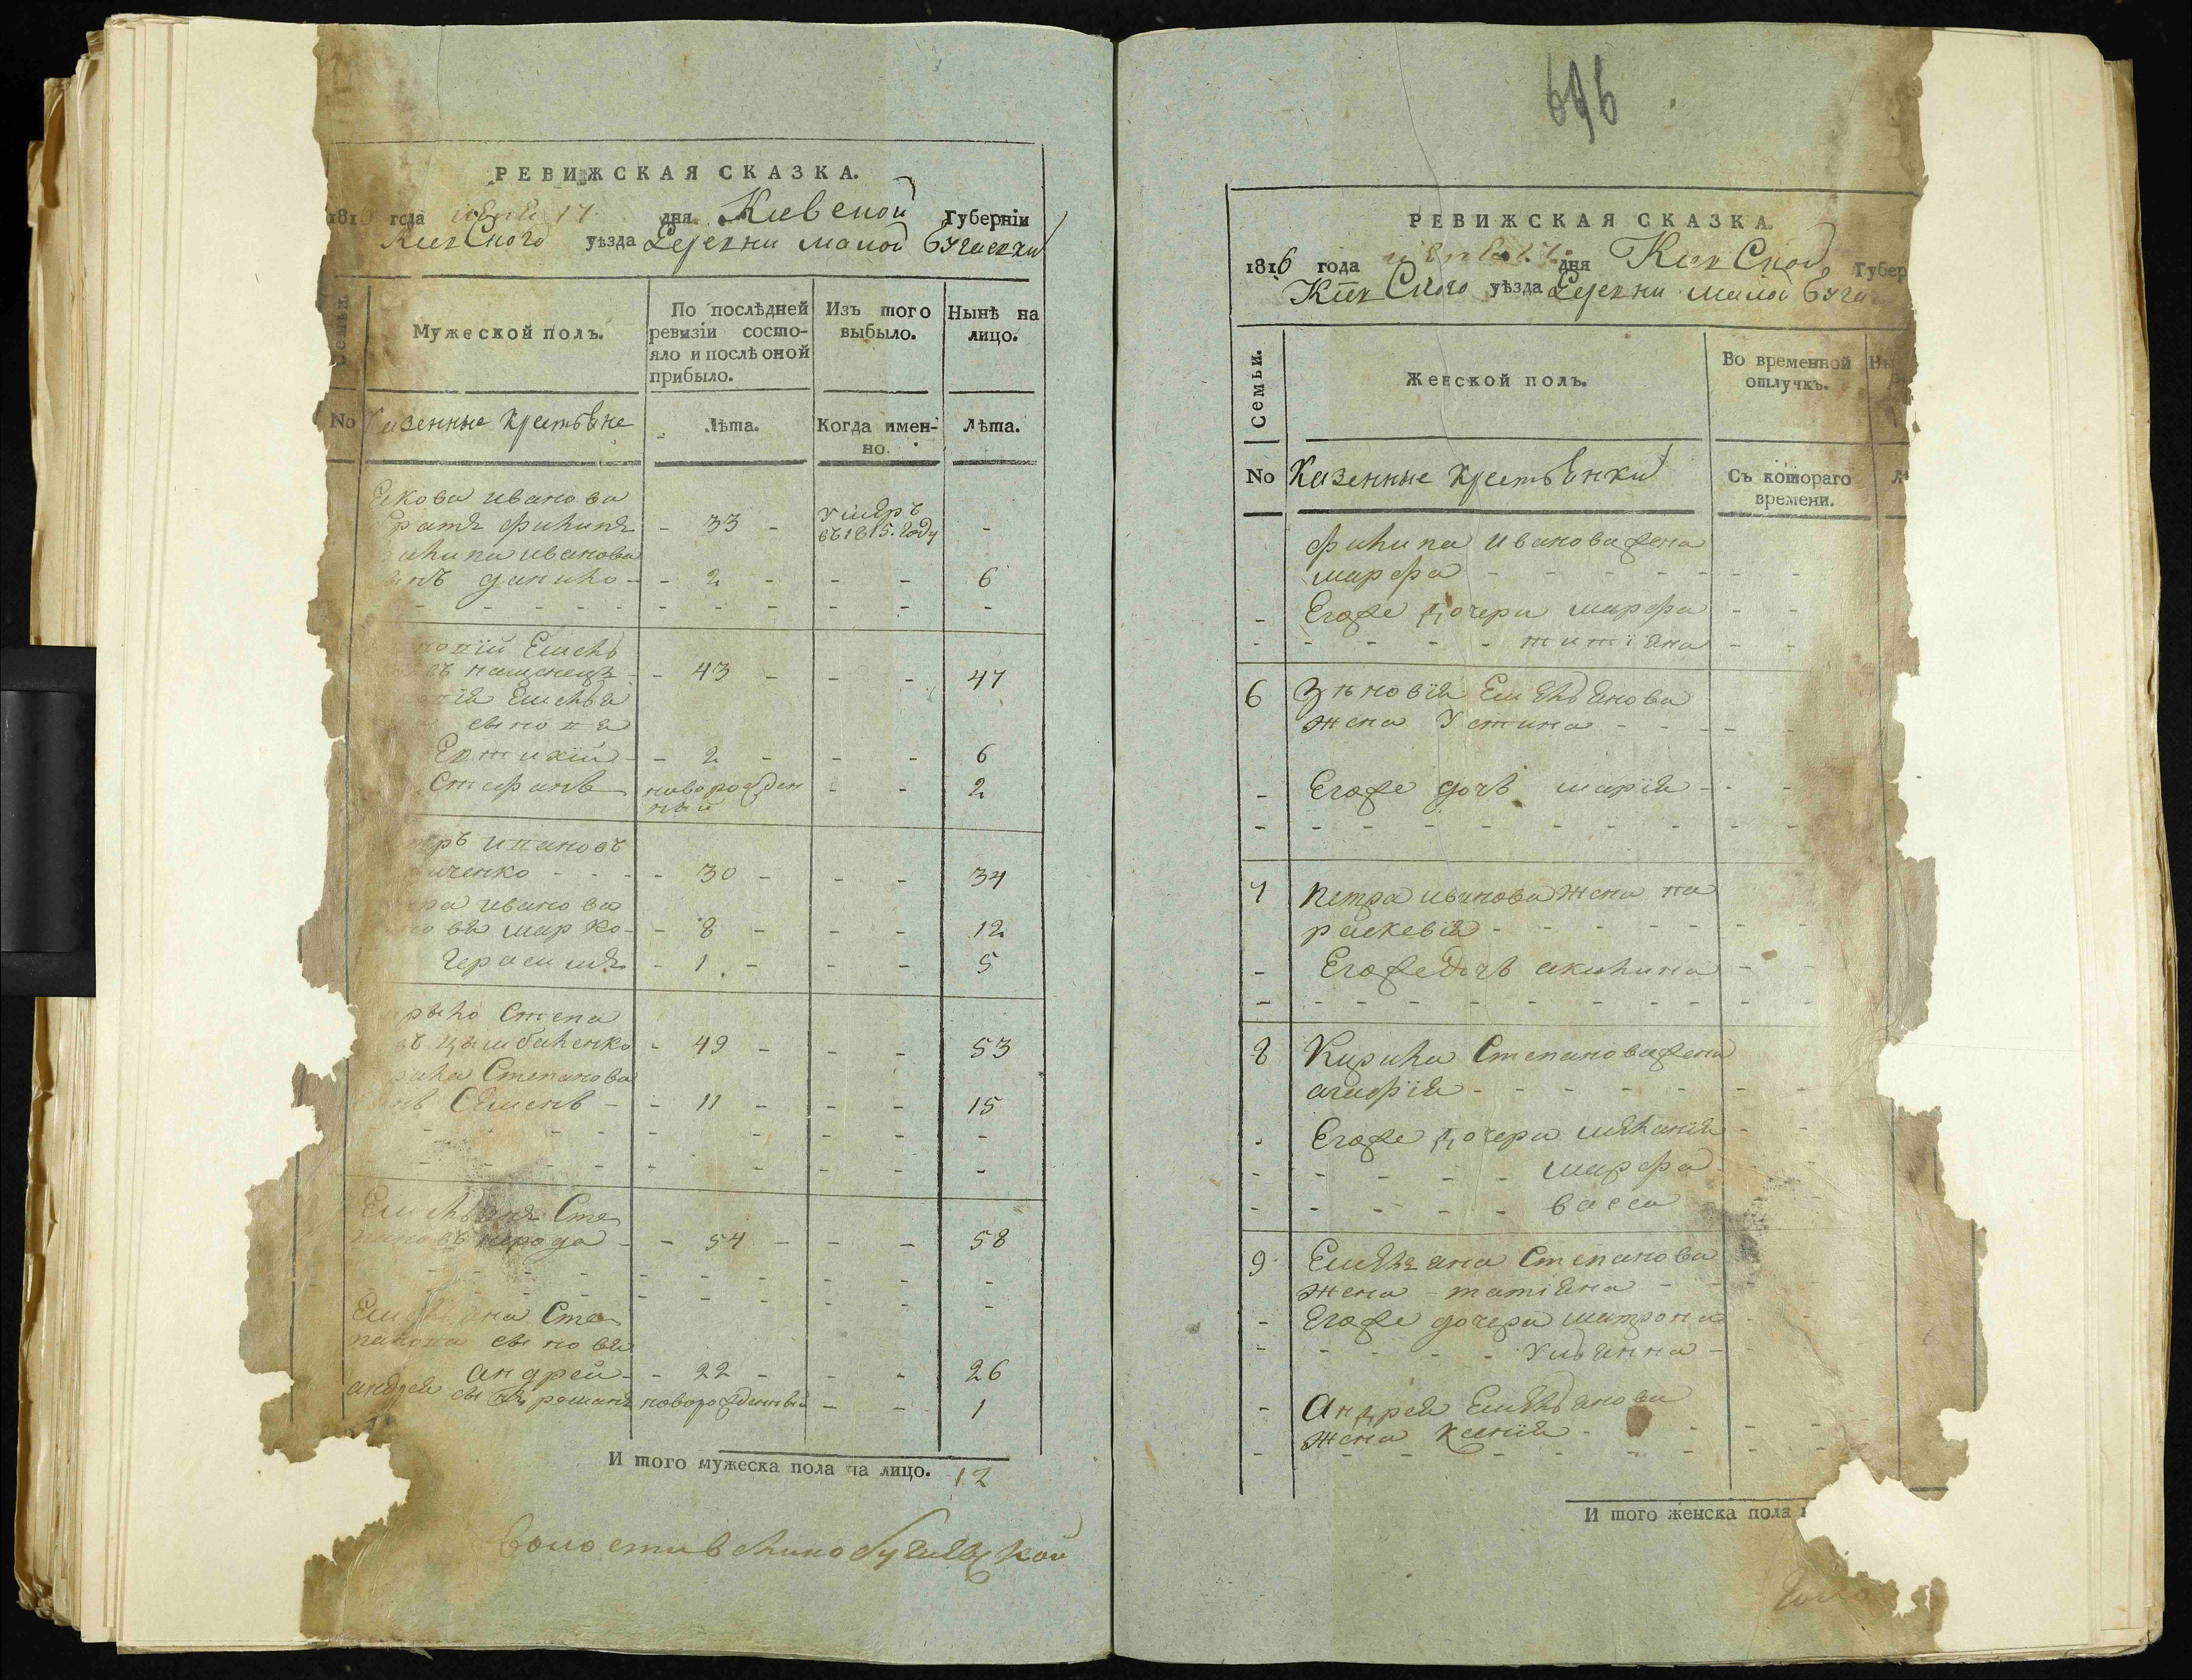 РЕВИЖСКАЯ СКАЗКА.
181 года 17 дня Киевской Губерніи
Киевского уѣзда Деревни малой бугаевки
Семьи.
Мужеской полъ.
По послѣдней ревизіи состояло и послѣ оной прибыло.
Изъ того выбыло.
Нынѣ на лицо.
No
Казенные крестьяне
Лѣта.
Когда именно.
Лѣта.
якова иванова
братъ филипъ - 33 - умеръ въ 1815. году -
филипа иванова
сынъ данило - - 2 - - - 6
Емель
въ - 43 - - - 47
Емелья
сынов я
Евтихій - - 2 - - - 6
Стефанъ новорожденный - - 2
ивановъ
иченко - - - 30 - - - 34
иванова
марко - - 8 - - - 12
Герасимъ - 1 - - - 5
рыло Степа
въ цымбаленко - 49 - - - 53
рила Степанова
сынъ Семенъ - - 11 - - - 15
Емельянъ Сте
пановъ - - 54 - - - 58
Емельяна Сте
панова сыновья
андрей - - 22 - - - 26
андрея сынъ романъ новорожденный - - 1
И того мужеска пола на лицо. 12
волости
696
РЕВИЖСКАЯ СКАЗКА.
1816 года дня Киевской Губер
Киевского уѣзда Деревни малой буга
Семьи.
Женской полъ.
Во временной отлучкѣ.
Ны
No
Казенные крестьянки
Съ котораго времени.
филипа иванова жена
марфа - - - - - -
- Егоже дочери марфа - -
- - - - - татіяна - -
6 Зѣновія Емельянова
жена Устина - - - -
- Егоже дочь марія - -
7 Петра иванова жена па
раскевія - - - - - -
- Егоже дочь акилина - -
8 Кирила Степанова жена
агафія - - - - - -
- Егоже дочери меланія -
- - - - - марфа
- - - - - васса
9 Емельяна Степанова
жена - татіяна -
- Егоже дочери матрона
- - - - - Ульянна -
- Андрея Емельянова
жена Ксенія -
И того женска пола